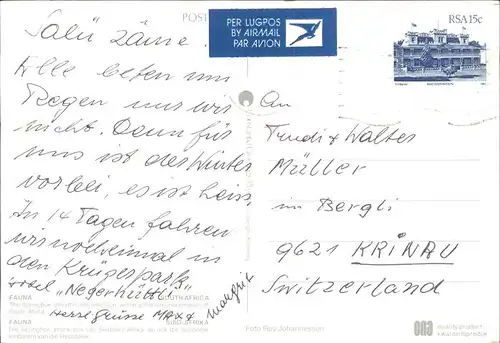 POST
PER LUGPOS
BY AIRMAIL
PAR AVION
RSA 15c
Salü zäme.
Alle beten um
Regen nur wir
nicht. Denn für
uns ist der Winter
vorbei, es ist heiss
In 14 Tagen fahren
wir nocheinmal in
den Krügerspark
Hotel "Negerhüttli"
Herzl Grüsse Max &
Margrit
An
Trudi & Walter
Müller
im Bergli
9621 KRINAU
Switzerland
FAUNA
SOUTH AFRICA
FAUNA
SUID-AFRIKA
Foto Ros Johannesson
quality product